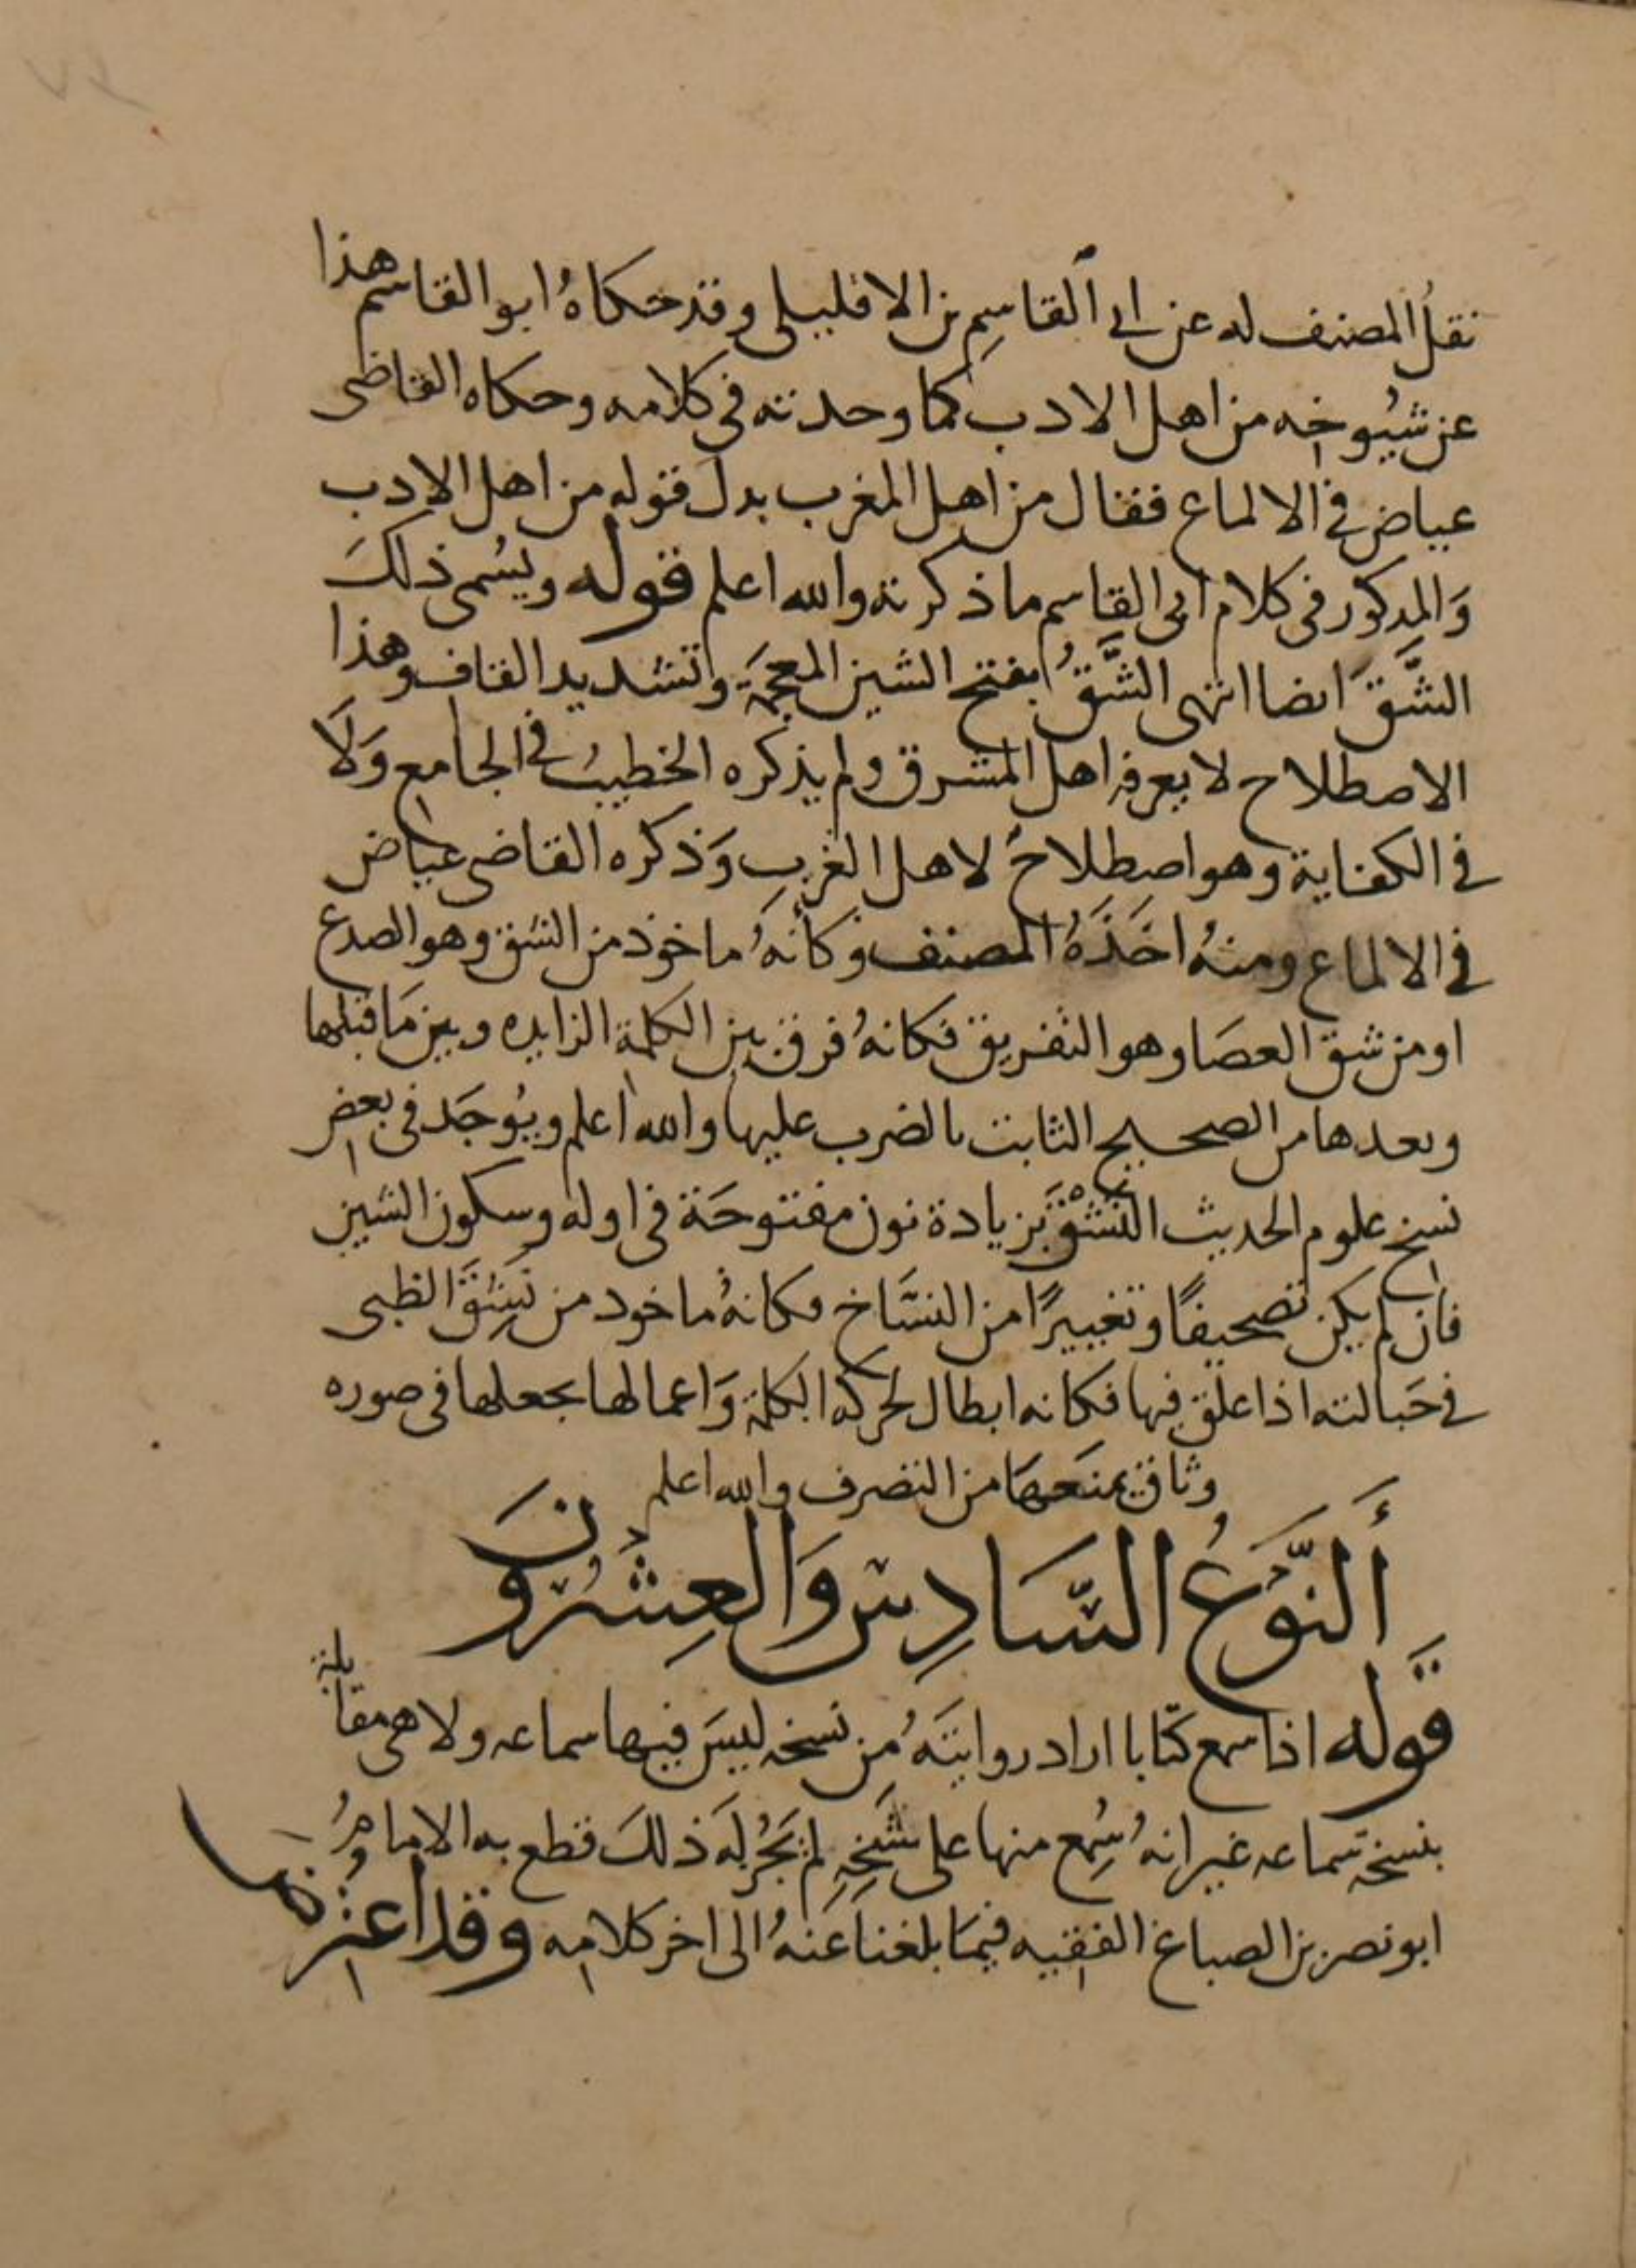 نقلُ المصنف له عن ابى القاسِم بن الافليلى وقد حكاهُ ابو القاسم هذا
عن شيُوخِه من اهل الادب كما وحدته فى كلامه وحكاه القاضى
عياض فى الالماع فقال من اهل المغرب بدلَ قوله من اهل الادب
وَالمذكور فى كلام ابى القاسم ما ذكرته والله اعلم قوله ويُسمى ذلكَ
الشَّقَ ايضا انتهى الشَّقُ بفتح الشين المعجمَة وتشديد القاف وهذا
الاصطلاح لا يعرفه اهل المشرق ولم يذكره الخطيبُ فى الجامع وَلَا
فى الكفاية وهو اصطِلاحُ لاهل الغربِ وَذكره القاضى عياض
فى الالماع ومنهُ اخَذَهُ المصنف وكأنهُ ماخوذ من الشق وهو الصدع
او من شق العصَا وهو التفريق فكانهُ فرق بين الكلمة الزايده وبين مَا قبلها
وبعدها من الصحيح الثابت بالضرب عليها والله اعلم ويُوجَد فى بعض
نسخ علوم الحديث النَشْقَ بزيادة نون مفتوحَة فى اوله وسكون الشين
فان لم يكن تصحيفًا وتغييرًا من النسَّاخ فكانهُ ماخود من نَشِقَ الظبى
فى حَبالته اذا علق فيها فكانه ابطال لحركة الكلمة وَاعمالها بجعلها فى صوره
وثاق يمنَعهَا من التصرف والله اعلم
أَلنَّوَعُ السَّادِس وَالعِشُرونَ
قَوله اذا سمع كتابا اراد روايتَهُ مِن نسخه ليسَ فيها سماعه ولا هى مقابلة
بنسخة سماعه غير انهُ سُمِع منها على شَيخِهِ لم يَجُز لَه ذلكَ قطع به الامامُ
ابو نصر بن الصباغ الفقيه فيمَا بلغنا عَنهُ الى اخر كلامِه وقد اعترضَ